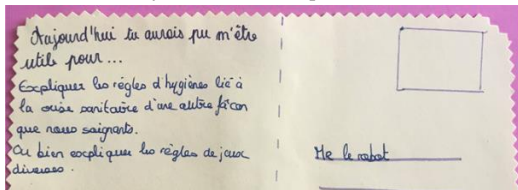 Aujourd'hui tu aurais pu m'être
utile pour...
Expliquer les règles d'hygiènes lié à
la crise sanitaire d'une autre façon
que nous soignants.
Ou bien expliquer les règles de jeux
diverses.
Me le robot